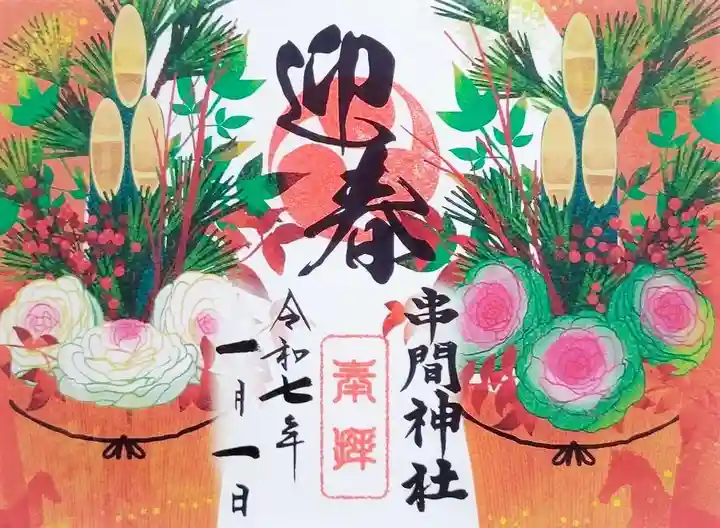 迎春
串間神社
奉拝
令和七年
一月一日